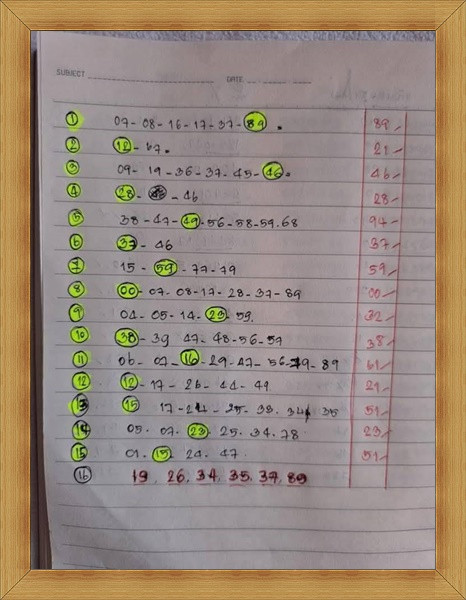 SUBJECT DATE
1 07-08-16-17-37-89. 89
2 12-67. 21
3 09-19-36-37-45-46. 46
4 28- -46 28
5 38-47-49-56-58-59.68 94
6 37-46 37
7 15-59-77-79 59
8 00-07-08-17-28-37-89 00
9 04-05-14-23-59. 32
10 38-39 47-48-56-59 38
11 06-07-16-29-47-56-79-89 61
12 12-17-26-44-49 21
13 15 17-24-25-33.34 35 51
14 05.07.23.25.34.78 23
15 01.15.24.47. 51
16 19.26.34.35.37.89